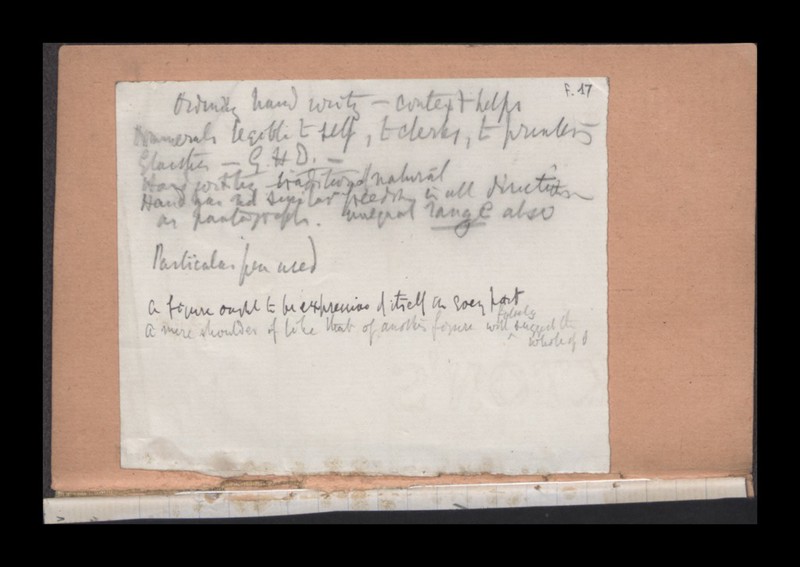 F. 17
Ordinary hand writg – context helps
Numerals legible to self, to clerks, to printers
– G.H.D. –
Hand writing traditional natural
Hand has not similar freedom in all direction
as pantagraph. unequal range also
Particular pen used
A figure ought to be expressive of itself in every part
A mere shoulder of like that of another figure will falsely suggest the
whole of it